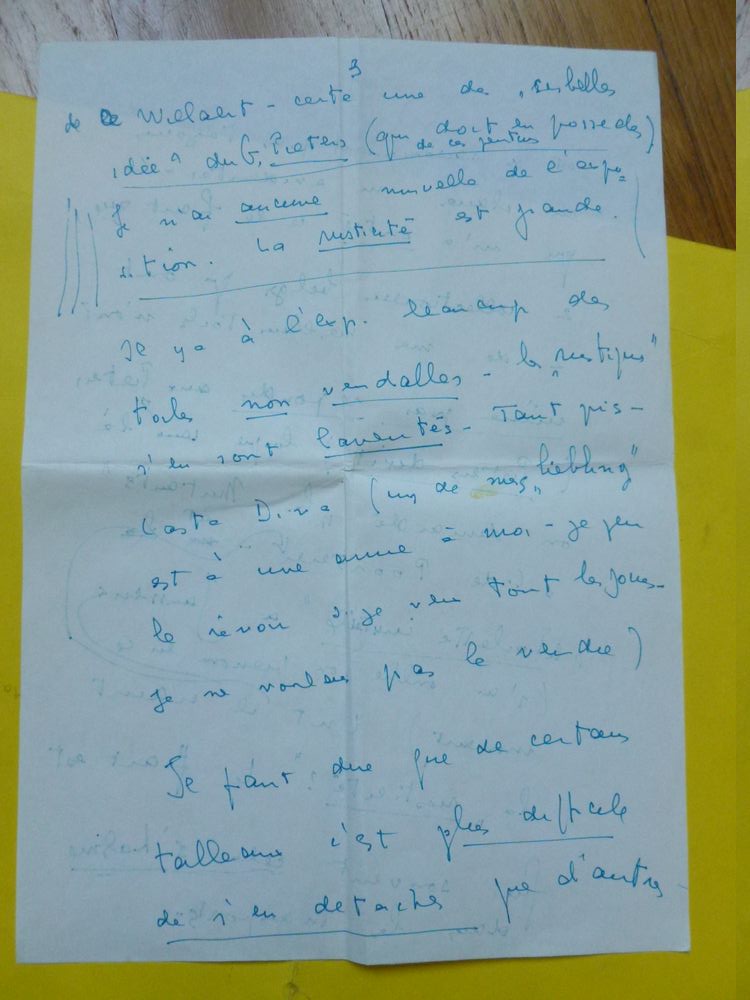 3
de Wielaert - certe une de ses belles
idée" du G. Pieters (qui doit en posseder)
de ces peintres
Je n'ai aucune nouvelle de l'expo=
sition. La rusticité est grande.
Je y a à l'exp. beaucoup des
toiles non vendables - les "rustiques"
s'en sont lamentés - Tant pis -
Casta Diva (un de mes „liebling"
est à une amie à moi - je peu
le révoir si je veu tout les jours -
Je ne voulais pas le vendre)
Je faut dire que de certains
tableaux c'est plus difficile
de s'en detacher que d'autres -